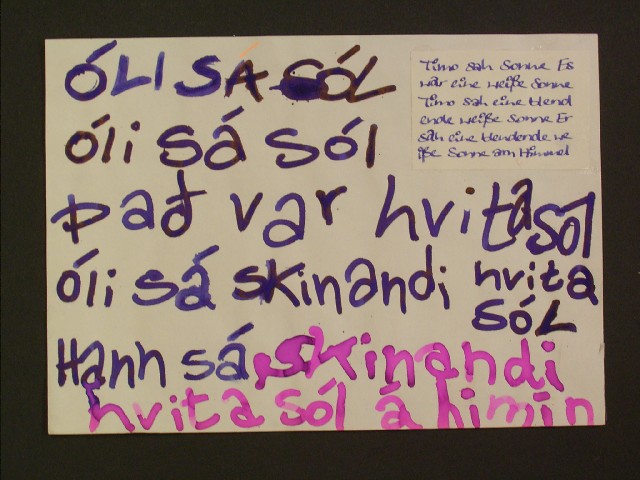 ÓLI SÁ SÓL
óli sá sól
það var hvita sól
óli sá skinandi hvita SÓL
Hann sá skinandi
hvita sól á himin
Timo sah Sonne Es
war eine weiße Sonne
Timo sah eine blend
ende weiße Sonne Er
sah eine blendende we
iße Sonne am Himmel